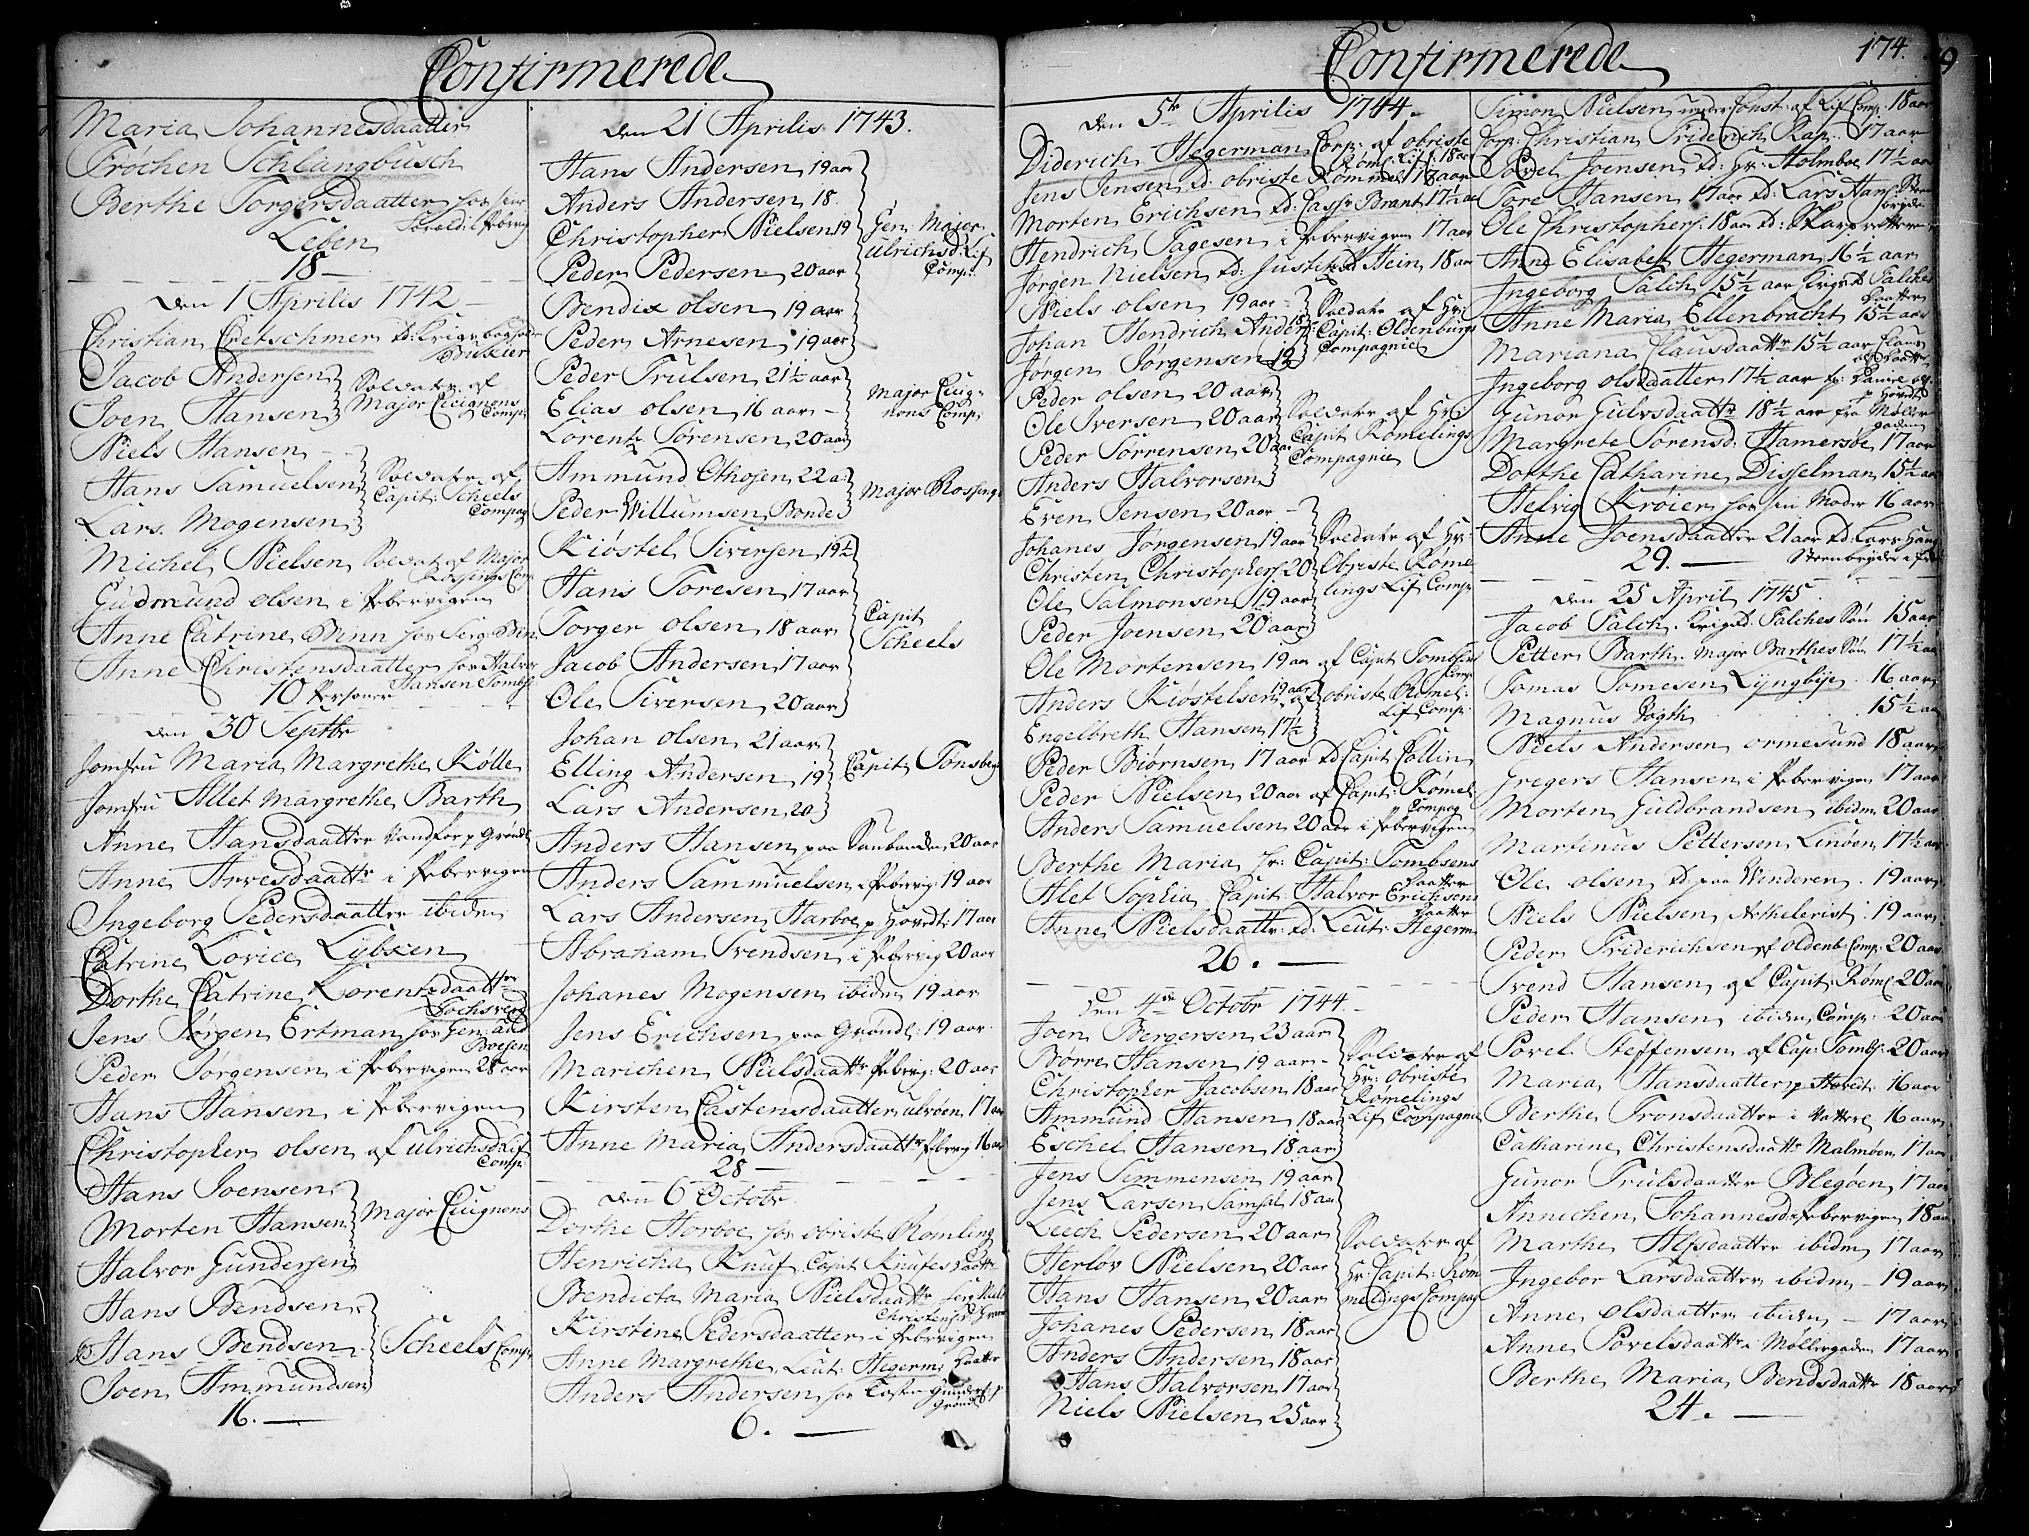 Confirmerede
Maria Johannesdaatter
Frøchen Schlangbusch
Berthe Torgersdaatter for sine
Foreld: i Pebervig
Leben
18 —
den 1 Aprilis 1742 —
Christian Cretschmer
Jacob Andersen
Joen Hansen
Soldater af
Major Cicignons
Comp:
Niels Hansen
Hans Samuelsen
Lars Mogensen
Soldater af
Capit: Scheels
Compag
Michel Nielsen Soldat af Major
Rossings Comp
Gudmund olsen i Pebervigen
Anne Catrine Benn for Serg: Ben
Anne Christensdaatter for Halvor
Hansen Tombs:
10 Personer
den 30 Septbr
Jomfru Maria Margrethe Kølle
Jomfru Allet Margrethe Barth
Anne Hansdaatter Vandfor p Grøndl
Anne Arvesdaattr i Pebervigen
Ingeborg Pedersdaatter ibidm
Catrine Lovice Lybken
Dorthe Catrine Lorentzdaattr
Jens Jørgen Ertman for Gen: aud
Boesen
Peder Jørgensen i Pebervigen 28 aar
Hans Hansen i Pebervigen
Christopher olsen af ulrichsd: Lif
Comp:
Hans Joensen
Morten Hansen
Halvor Gundersen
Major Cicignons
Hans Bendsen
Hans Bendsen
Joen Ammundsen
Scheels Comp:
16. —
den 21 Aprilis 1743.
Hans Andersen 19 aar
Anders Andersen 18.
Christopher Nielsen 19
Peder Pedersen 20 aar
Bendix olsen 19 aar
Peder Arnesen 19 aar
Gen: Major
Ulrichsd: Lif
Comp:
Peder Trulsen 21½ aar
Elias olsen 16 aar —
Lorentz Sørensen 20 aar
Major Cicig-
nons Comp:
Ammund Othosen 22 a:
Peder Willumsen Bonde
Major Rossings
Kiøstel Siversen 19½
Hans Toresen 17 aar
Torger olsen 18 aar
Jacob Andersen 17 aar
Ole Siversen 20 aar
Capit
Scheels
Johan olsen 21 aar
Elling Andersen 19
Lars Andersen 20
Capit Tønsberg
Anders Hansen paa Saubanden 20 aar
Anders Sammuelsen i Pebervig: 19 aar
Lars Andersen Harboe p Hovedt: 17 aar
Abraham Svendsen i Pebervig 20 aar
Johanes Mogensen ibidm 19 aar
Jens Erichsen paa Grøndl: 19 aar
Marichen Nielsdaattr Pebervig: 20 aar
Kirsten Castensdaatter ulvøen 17 aar
Anne Maria Andersdaattr Pebervig 16 aar
28 —
den 6 Octobr
Dorthe Horboe for obriste Rømling
Henricha Knuf Capit Knufes Daattr
Bendicta Maria Nielsdaattr
Kirstine Pedersdaatter i Pebervigen
Anne Margrethe Leut: Hegerm: Daatter
Anders Andersen for
6. —
Confirmerede 174.
den 5te Aprilis 1744.
Diderich Hegerman Corp: af obriste
Røml: Lif: 18 aar
Jens Jensen d: obriste Rømmel 17 aar
Morten Erichsen d: Brant 17½ aar
Hendrich Tagesen i Pebervigen 17 aar
Jørgen Nielsen d: Justitsrd Hein 18 aar
Niels olsen 19 aar —
Johan Hendrich Anders: 18
Jørgen Jørgensen 19
Soldater af Hr:
Capit: Oldenburgs
Compagnie
Peder olsen 20 aar
Ole Iversen 20 aar
Peder Sørrensen 20 aar
Anders Halvorsen
Soldater af Hr:
Capit Rømelings
Compagnie
Even Jensen 20 aar —
Johanes Jørgensen 19 aar
Christen Christophers: 20
Ole Salmonsen 19 aar
Peder Joensen 20 aar
Soldater af Hr:
Obriste Røme
lings Lif Comp:
Ole Mortensen 19 aar af Capit Tombsens
Comp:
Anders Kiøstelsen 19 aar
Engelbreth Hansen 17½
af obriste Rømel:
Lif Comp:
Peder Biørnsen 17 aar d Capit Collin
Peder Nielsen 20 aar af Capit: Rømel:
Compag
Anders Samuelsen 20 aar i Pebervigen
Berthe Maria Hr: Capit: Tombsens
Daatter
Alet Sophia Capit: Halvor Erichsens
Daatter
Anne Nielsdaattr: d: Leut: Hegerm:
26. —
den 4de Octobr 1744.
Joen Bergersen 23 aar
Børre Hansen 19 aar —
Christopher Jacobsen 18 aar
Ammund Hansen 18 aar
Eschel Hansen 18 aar
Soldater af
Hr: obriste
Rømelings
Lif Compagnie
Jens Simmensen 19 aar
Jens Larsen 18 aar
Leech Pedersen 20 aar
Herlov Nielsen 20 aar
Hans Hansen 20 aar
Johanes Pedersen 18 aar
Anders Andersen 18 aar
Hans Halvorsen 17 aar
Niels Nielsen 25 aar
Soldater af
Hr: Capit: Rom
melings Compag
Simon Nielsen under Const: af Lif Comp: 18 aar
Corp: Christian Friderich Rap: 17 aar
Povel Joensen d: Hr: Holmboe 17½ aar
Tore Hansen 17 aar d: Lars Hans:
Ole Christophers: 18 aar d:
Anne Elisabet Hegerman 16½ aar
Ingeborg Falch 15½ aar Krigsrd Falches
Daatter
Anne Maria Ellenbracht 15½ aar
Mariana Clausdaattr 15½ aar
Ingeborg olsdaatter 17½ aar
Gunor Gulvsdaattr 18½ aar fra Møller
gaden
Margrete Sørensd: Hamersbøe 17 aar
Dorthe Catharine Disselman 15½ aar
Helvig Krøier for sin Moder 16 aar
Anne Joensdaatter 21 aar d: Lars Hans:
Steenbryder i Peb
29. —
den 25 April 1745.
Jacob Falch. Krigsd: Falches Søn 15 aar
Petter Barth. Major Barthes Søn 17½ aar
Tomas Tomesen Lyngbye. 16 aar
Magnus Vogth 15½ aar
Niels Andersen ormesund 18 aar
Gregers Hansen i Pebervigen 17 aar
Morten Guldbrandsen ibidm 20 aar
Martinus Pettersen Linøen 17½ aar
Ole olsen d: paa Vinderen. 19 aar
Niels Nielsen Arthelerist. 19 aar
Peder Friderichsen af oldenb: Comp: 20 aar
Svend Hansen af Capit: Røml 20 aar
Peder Hansen ibidm Comp: 20 aar
Povel Steffensen af Cap: Tombs: 20 aar
Maria Hansdaatter p Hovedt: 16 aar
Berthe Tronsdaatter i Vatterl 16 aar
Catharine Christensdaattr Malmøen 17 aar
Gunor Trulsdaatter Blegøen 17 aar
Annichen Johannesd: Pebervigen 18 aar
Marthe Alfsdaatter ibidm 17 aar
Ingebor Larsdaatter ibidm — 19 aar
Anne olsdaatter ibidm — 17 aar
Anne Povelsdaattr i Møllergaden 17 aar
Berthe Maria Bendsdaattr 18 aar
24. —